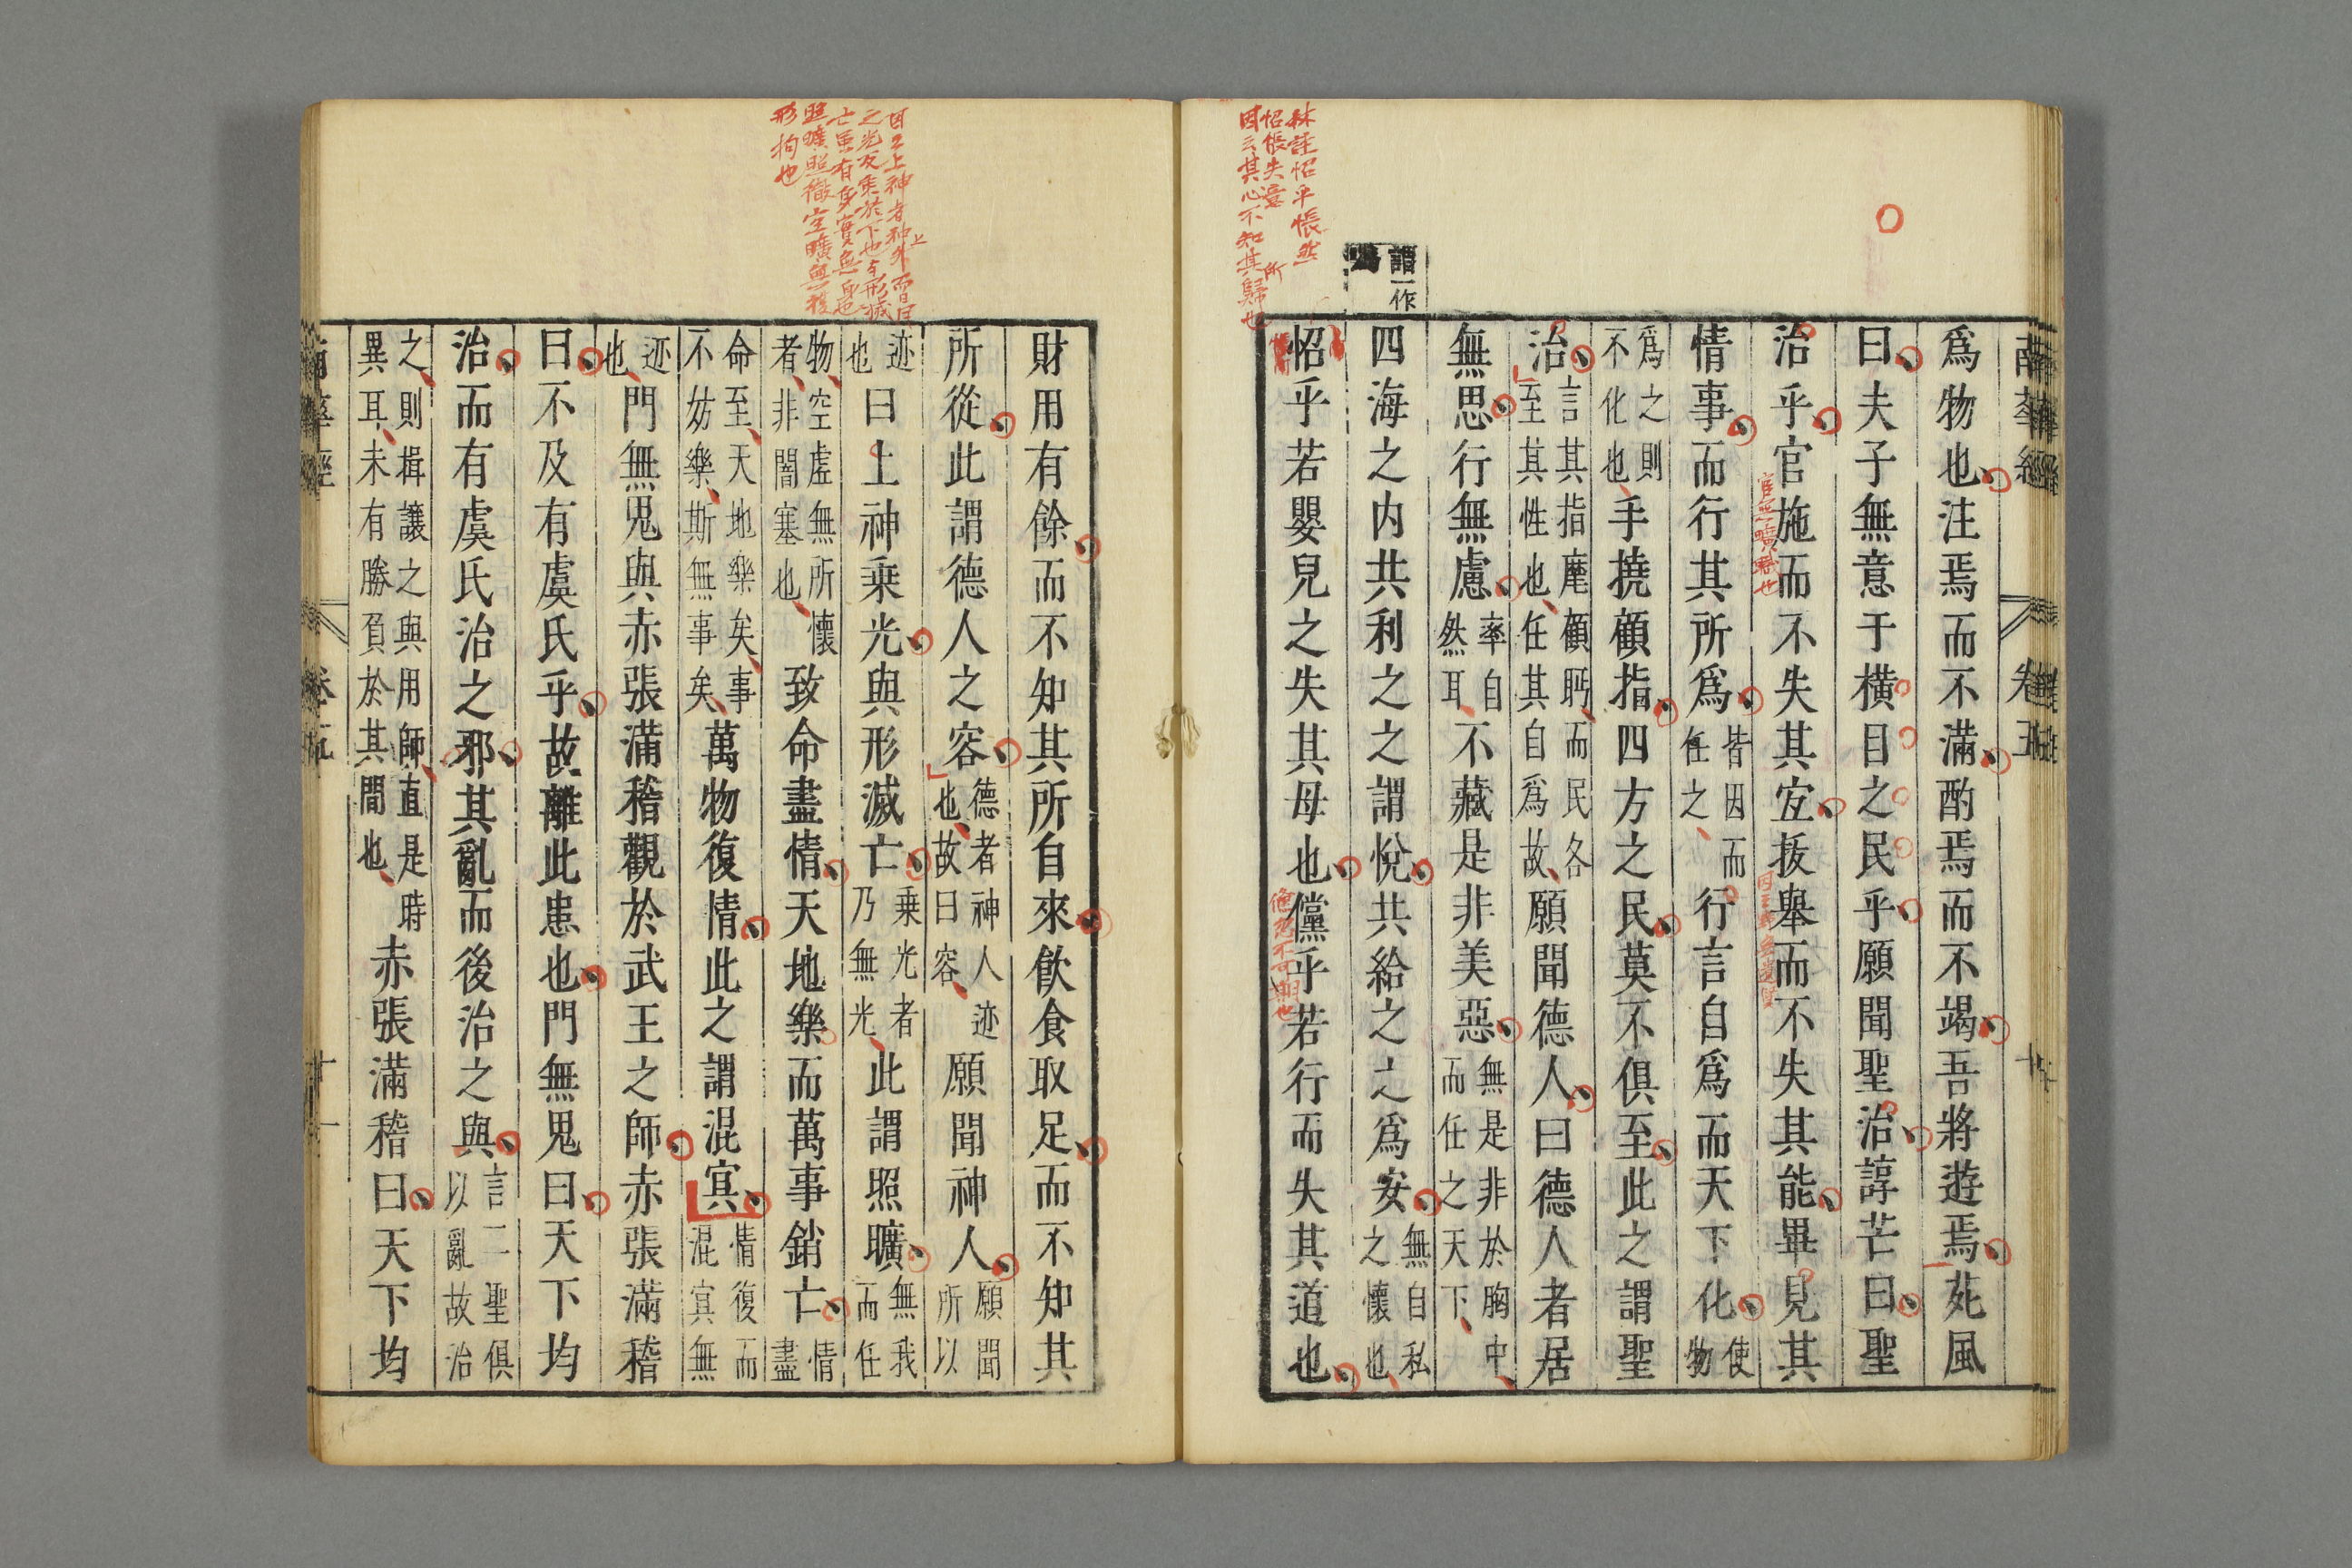 南華經 卷五
爲物也注焉而不滿酌焉而不竭吾將遊焉苑風
曰夫子無意于橫目之民乎願聞聖治諄芒曰聖
治乎官施而不失其宜拔舉而不失其能畢見其
情事而行其所爲皆因而任之行言自爲而天下化使物
爲之則不化也手撓顧指四方之民莫不俱至此之謂聖
治言其指麾顧眄而民各至其性也任其自爲故願聞德人曰德人者居
無思行無慮率自然耳不藏是非美惡無是非於胸中而任之天下
四海之内共利之之謂悅共給之之爲安無自私之懷也
怊乎若嬰兒之失其母也儻乎若行而失其道也
謂一作爲
林註怊乎悵然
怊悵失意
因云其心不知其所歸也
官無曠職也
財用有餘而不知其所自來飲食取足而不知其
所從此謂德人之容德者神人迹也故曰容願聞神人願聞所以
迹也曰上神乗光與形滅亡乗光者乃無光此謂照曠無我而任
物空虛無所懷者非闇塞也致命盡情天地樂而萬事銷亡情盡
命至天地樂矣事不妨樂斯無事矣萬物復情此之謂混㝠情復而混㝠無
迹也門無鬼與赤張滿稽觀於武王之師赤張滿稽
曰不及有虞氏乎故離此患也門無鬼曰天下均
治而有虞氏治之邪其亂而後治之與言二聖俱以亂故治
之則揖讓之與用師直是時異耳未有勝負於其間也赤張滿稽曰天下均
形拘也
南華經 卷五 十一